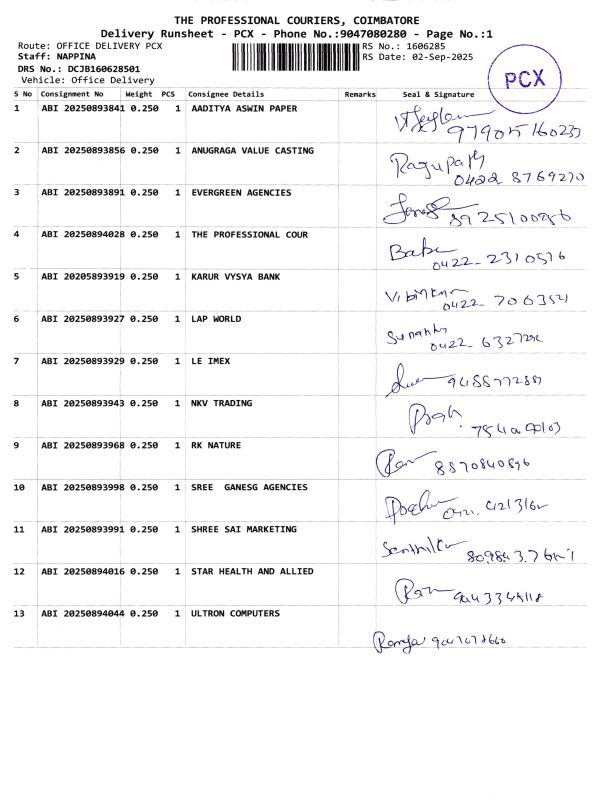 THE PROFESSIONAL COURIERS, COIMBATORE
Delivery Runsheet - PCX - Phone No.:9047080280 - Page No.:1
Route: OFFICE DELIVERY PCX
RS No.: 1606285
Staff: NAPPINA
RS Date: 02-Sep-2025
DRS No.: DCJB160628501
Vehicle: Office Delivery
PCX
S No Consignment No Weight PCS Consignee Details Remarks Seal & Signature
1 ABI 20250893841 0.250 1 AADITYA ASWIN PAPER
2 ABI 20250893856 0.250 1 ANUGRAGA VALUE CASTING
Ragupath
0422 8769270
3 ABI 20250893891 0.250 1 EVERGREEN AGENCIES
4 ABI 20250894028 0.250 1 THE PROFESSIONAL COUR
Babu
0422-2310516
5 ABI 20205893919 0.250 1 KARUR VYSYA BANK
0422-
6 ABI 20250893927 0.250 1 LAP WORLD
0422-
7 ABI 20250893929 0.250 1 LE IMEX
8 ABI 20250893943 0.250 1 NKV TRADING
9 ABI 20250893968 0.250 1 RK NATURE
8870840896
10 ABI 20250893998 0.250 1 SREE GANESG AGENCIES
11 ABI 20250893991 0.250 1 SHREE SAI MARKETING
12 ABI 20250894016 0.250 1 STAR HEALTH AND ALLIED
13 ABI 20250894044 0.250 1 ULTRON COMPUTERS
Ramya